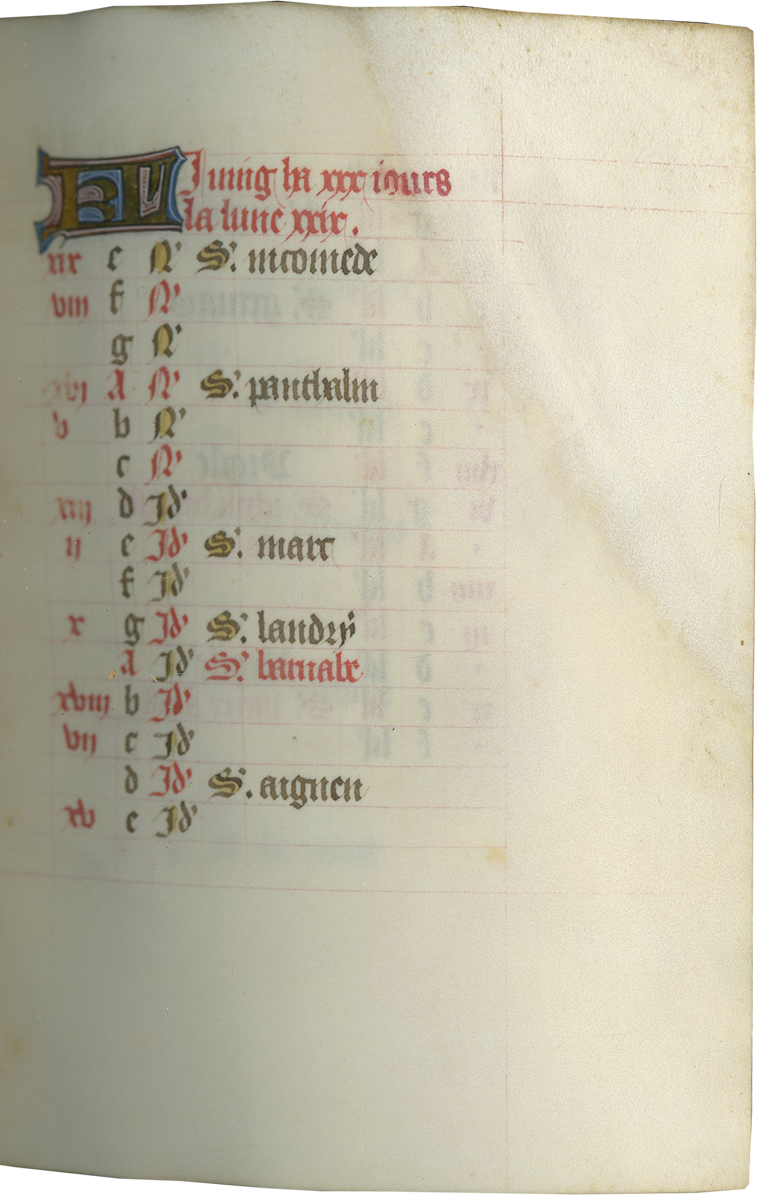 KL Juing ha xxx iours
la lune xxix.
xix e N' S'. nicomede
viii f N'
g N'
xvi A N' S'. panthalin
v b N'
c N'
xiii d Jd'
ii e Jd' S'. marc
f Jd'
x g Jd' S'. landry
A Jd' S'. barnabe
xviii b Jd'
vii c Jd'
d Jd' S'. aignen
xv e Jd'